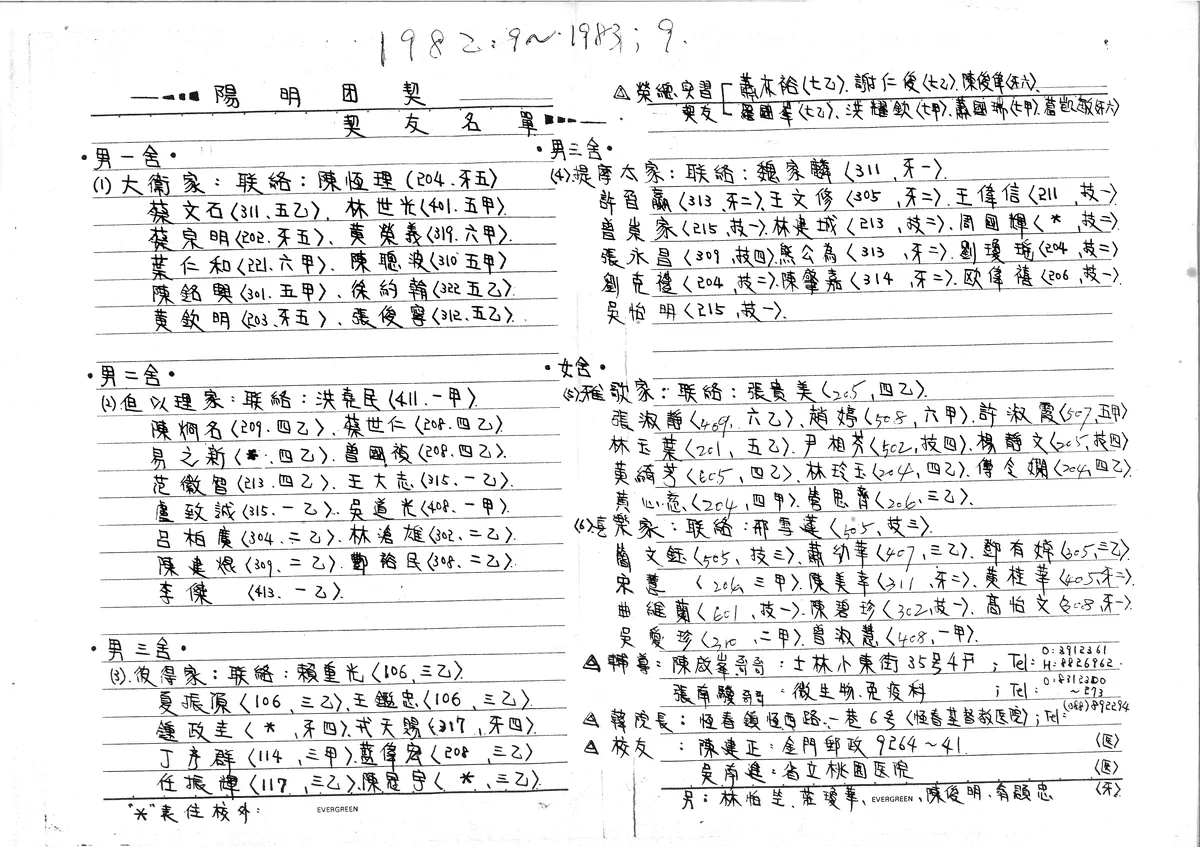 1982:9~1983;9.
陽明团契
契友名單
·男一舍·
(1)大衛家:联絡:陳恆理(204.牙五)
蔡文石(311.五乙)、林世光(401.五甲).
蔡宗明(202.牙五)、黃榮義(319.六甲).
葉仁和(221.六甲)、陳聰波(310五甲)
陳銘興(301.五甲)、徐約翰(322五乙).
黃欽明(203.牙五)、張俊寧(312.五乙).
·男二舍·
(2)但以理家:联絡:洪堯民(411.一甲).
陳炯名(209.四乙)、蔡世仁(208.四乙).
易之新(*.四乙)、曾國複(208.四乙).
范徵智(213.四乙)、王大志(315.一乙).
盧致誠(315.一乙)、吳道光(408.一甲).
呂柏廣(304.二乙)、林滄雄(302.二乙).
陳建焜(309.二乙)、鄭裕民(308.二乙).
李傑(413.一乙).
·男三舍·
(3).彼得家:联絡:賴重光(106,三乙).
夏振源(106,三乙)、王鑑忠(106,三乙)
鍾政圭(*,牙四)、戎天賜(317,牙四).
丁序群(114,三甲)、藍偉宏(208,三乙)
任振輝(117,三乙)、陳冠宇(*,三乙).
"*"表住校外:
EVERGREEN
△榮總实習 蕭亦裕(七乙).謝仁俊(七乙).陳俊傑(牙六)
契友 羅國峯(七乙)、洪耀欽(七甲).蕭國瑞(七甲).葛凱敏(牙六)
·男三舍·
(4).提摩太家:联絡:魏家麟(311,牙一).
許百贏(313.牙二).王文修(305,牙二).王偉信(211,技一)
曾崇家(215,技一).林建城(213,技二).周國輝(*,技二).
張永昌(309,技四).熊公為(313,牙二).劉瓊瑤(204,技二)
劉克禮(204,技二).陳肇嘉(314,牙二).欧偉禧(206,技一).
吳怡明(215,技一).
·女舍·
(5).雅歌家:联絡:張貴美(205,四乙).
張淑靜(409,六乙).趙婷(508,六甲).許淑霞(507,五甲)
林玉葉(201,五乙).尹柏芬(502,技四).楊靜文(205,技四)
黃綺芳(605,四乙).林玲玉(204,四乙).傅令嫻(204,四乙)
黃心慈(204,四甲).營思齊(206,三乙).
(6)喜樂家:联絡:邢雪蓮(505,技三).
簡文鈺(505,技三).蕭幼華(407,三乙).鄭有婷(305,三乙)
宋慧(204,三甲).陳美幸(311,牙二).黃桂華(405,牙二).
曲維蘭(601,技一).陳碧珍(302,技一).高怡文(308,牙一).
吳愛珍(210,二甲).曾淑慧(408,一甲).
△輔導:陳啟峯哥哥:士林小東街35号4F;Tel:O:3912361 H:8826962.
張南驥哥哥:微生物.免疫科;Tel:O:8312300~293
△韓院長:恆春鎮恆西路.一巷6号(恆春基督教医院);Tel:(088)892294
△校友:陳建正:金門郵政9264~41.(医)
吳南進:省立桃園医院(医)
另:林怡芝.莊瓊華、陳俊明.(牙)
EVERGREEN